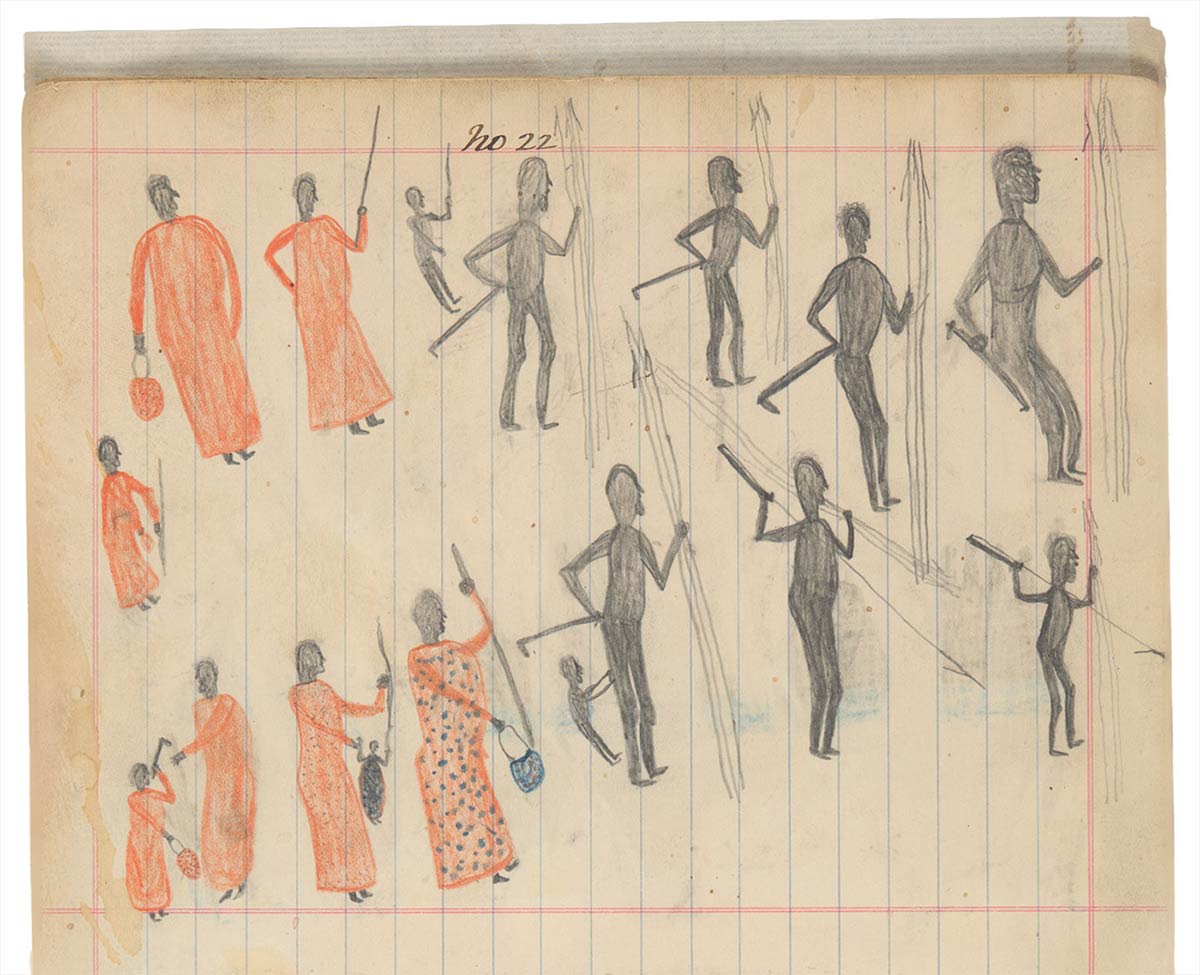 no 22